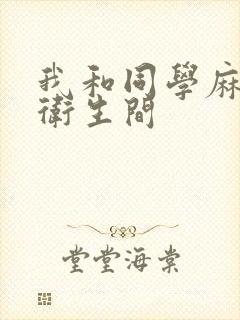 我和同學麻
衛生間
堂堂海棠